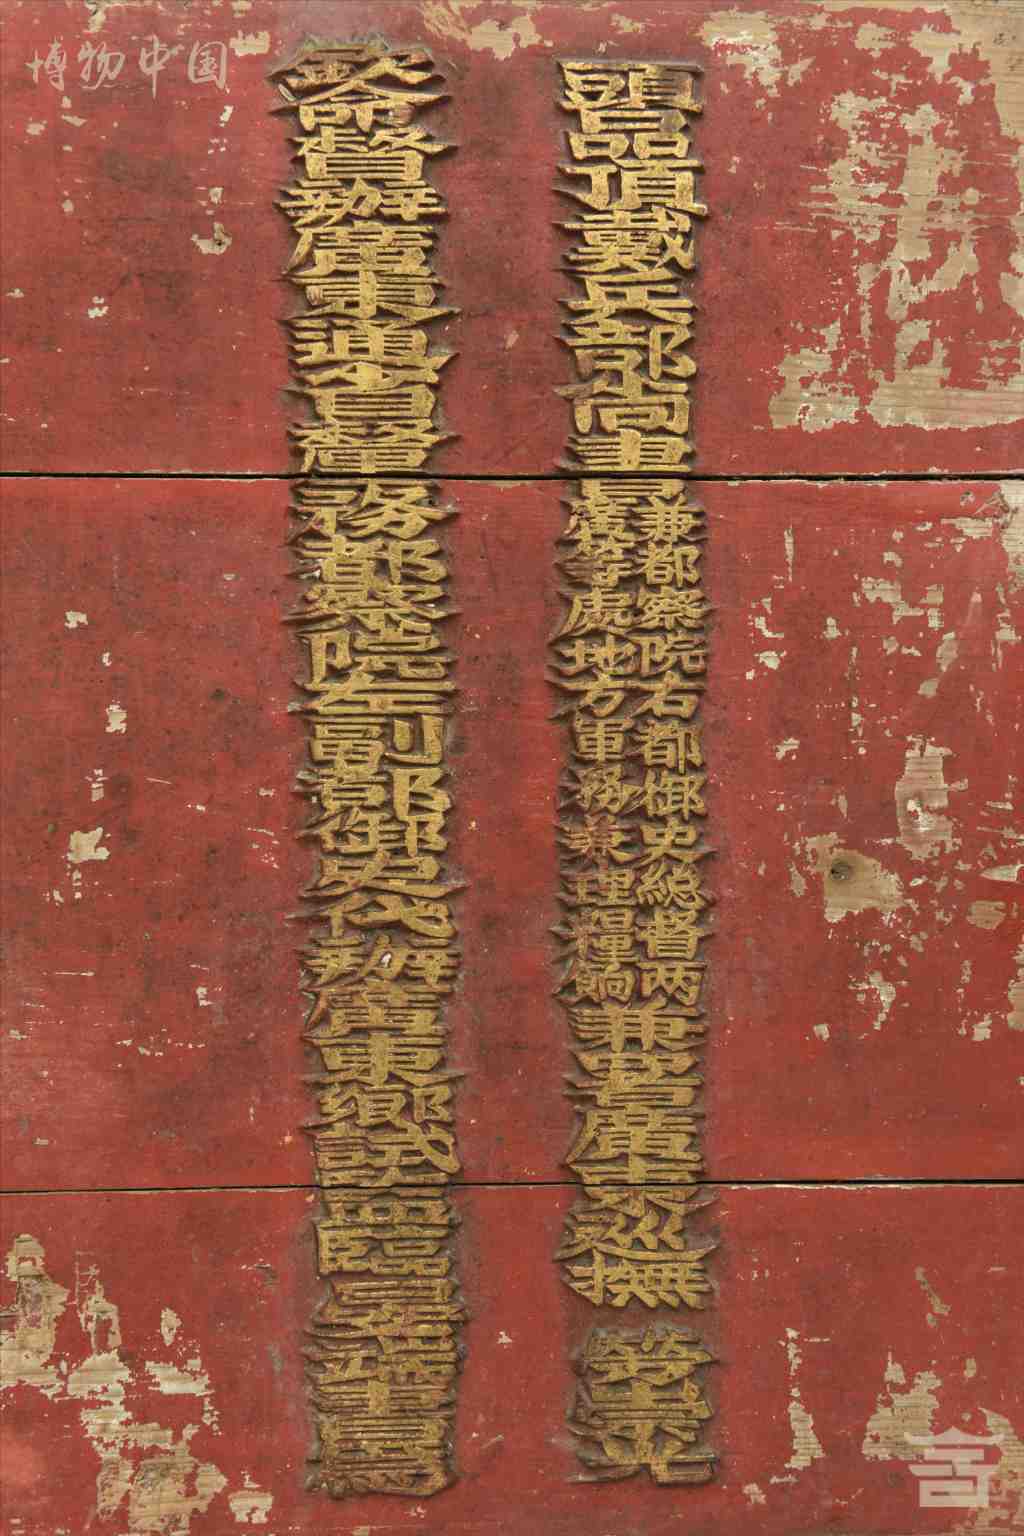 博物中国
頭品頂戴兵部尚書
兼都察院右都御史總督两
廣等處地方軍務兼理糧餉
兼署廣東巡撫 勞崇光
欽命督辦廣東通省釐務都察院左副都御史代辦廣東鄉試監臨晏端書爲